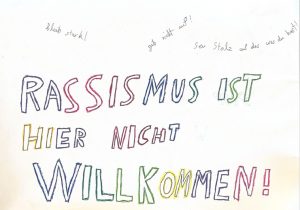 Bleib stark!
geb nicht auf!
Sei Stolz auf das was du hast!
RASSISMUS IST
HIER NICHT
WILLKOMMEN!